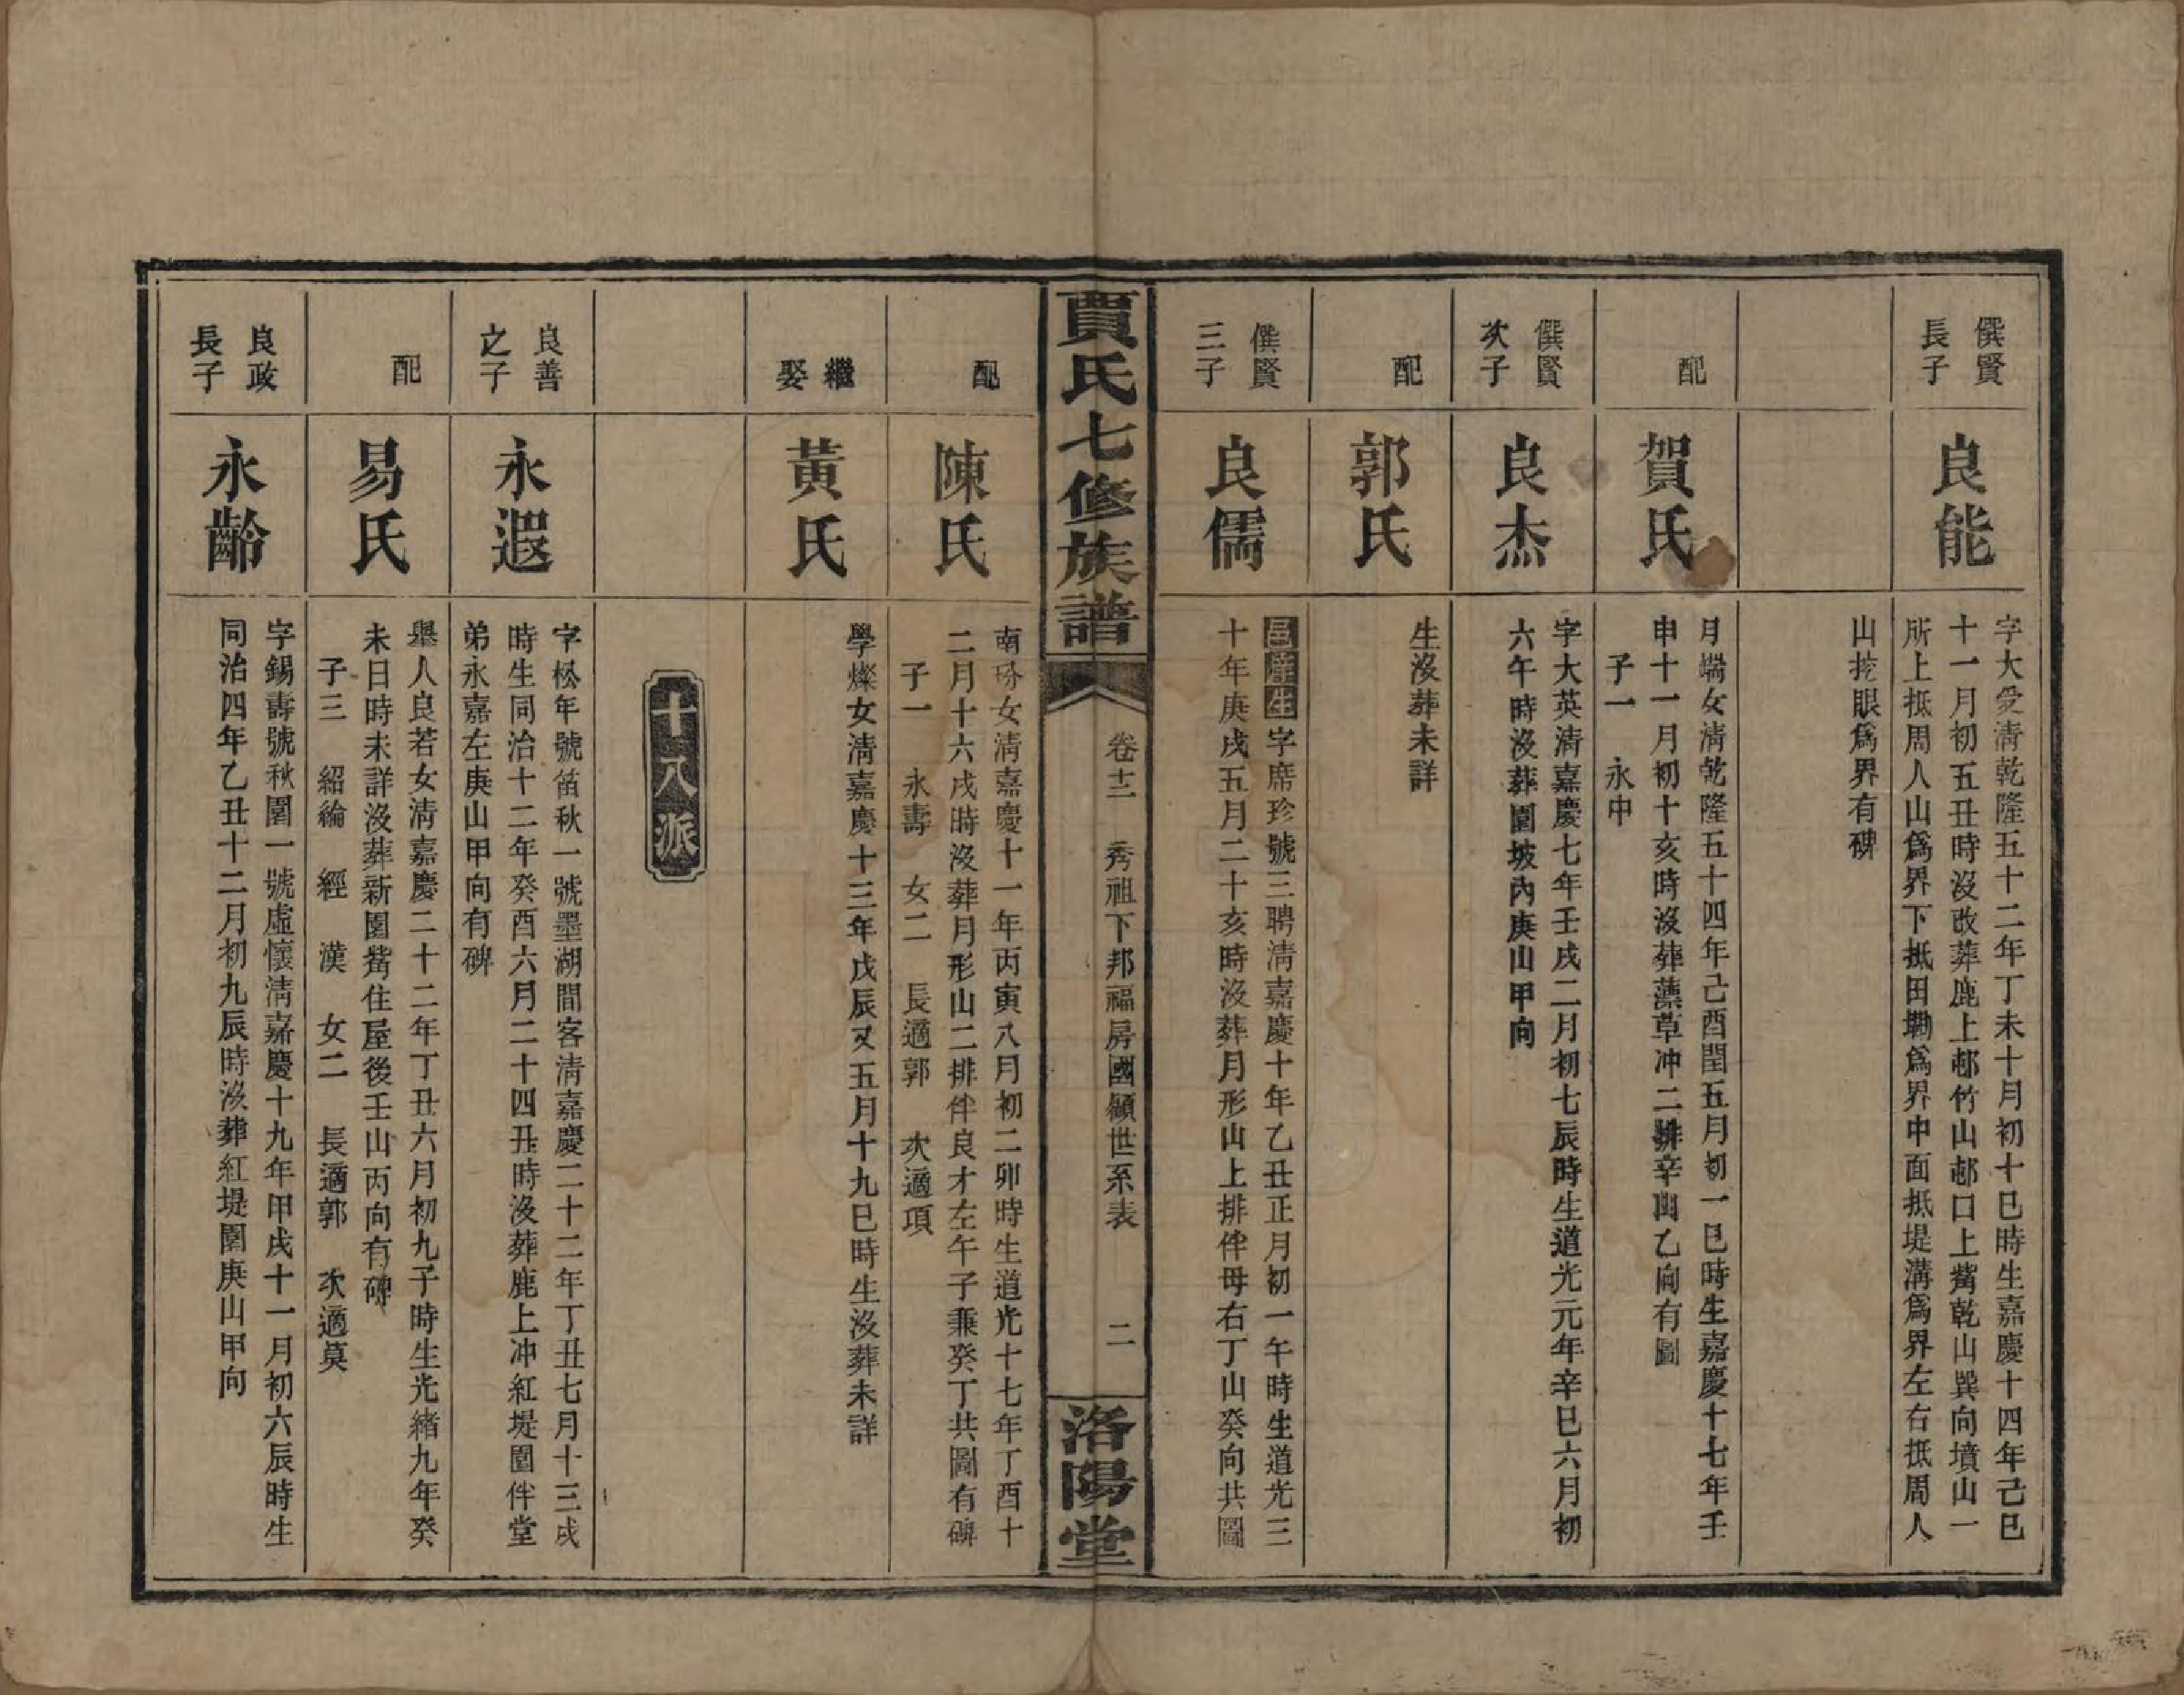 僎賢
長子
良能
字大受清乾隆五十二年丁未十月初十巳時生嘉慶十四年己巳
十一月初五丑時沒改葬鹿上邨竹山邨口上觜乾山巽向墳山一
所上抵周人山爲界下抵田墈爲界中面抵堤溝爲界左右抵周人
山挖眼爲界有碑
配
賀氏
月端女清乾隆五十四年己酉閏五月初一巳時生嘉慶十七年壬
申十一月初十亥時沒葬藁草冲二排辛山乙向有圖
子一　永中
僎賢
次子
良杰
字大英清嘉慶七年壬戌二月初七辰時生道光元年辛巳六月初
六午時沒葬園坡內庚山甲向
配
郭氏
生沒葬未詳
僎賢
三子
良儒
邑庠生字席珍號三聘清嘉慶十年乙丑正月初一午時生道光三
十年庚戌五月二十亥時沒葬月形山上排伴母右丁山癸向共圖
賈氏七修族譜
卷十二　秀祖下邦福房國顯世系表　二
洛陽堂
配
陳氏
南玢女清嘉慶十一年丙寅八月初二卯時生道光十七年丁酉十
二月十六戌時沒葬月形山二排伴良才左午子兼癸丁共圖有碑
子一　永壽　女二　長適郭　次適項
繼
娶
黃氏
學燦女清嘉慶十三年戊辰又五月十九巳時生沒葬未詳
十八派
良善
之子
永遐
字松年號笛秋一號墨湖間客清嘉慶二十二年丁丑七月十三戌
時生同治十二年癸酉六月二十四丑時沒葬鹿上冲紅堤園伴堂
弟永嘉左庚山甲向有碑
配
易氏
舉人良若女清嘉慶二十二年丁丑六月初九子時生光緒九年癸
未日時未詳沒葬新園觜住屋後壬山丙向有碑
子三　紹綸　經　漢　女二　長適郭　次適莫
良政
長子
永齡
字錫壽號秋圍一號虛懷清嘉慶十九年甲戌十一月初六辰時生
同治四年乙丑十二月初九辰時沒葬紅堤園庚山甲向